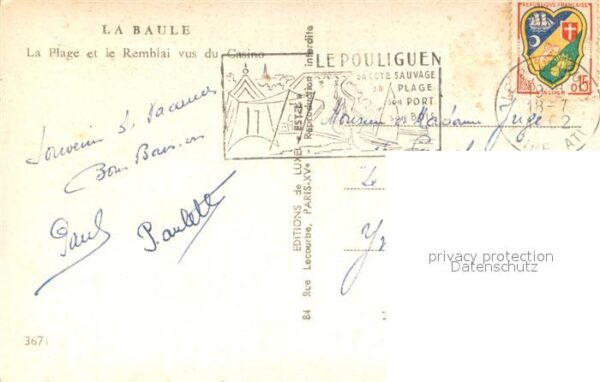 LA BAULE
La Plage et le Remblai vus du Casino
Souvenir de Vacances
Bons Baisers
Paul
Paulette
3671
EDITIONS de LUXE
84 Rue Lecourbe, PARIS-XVe
Reproduction interdite
LE POULIGUEN
SA COTE SAUVAGE
SA PLAGE
SON PORT
SON BOIS
REPUBLIQUE FRANCAISE
0,15
18-7
Monsieur et Madame Juge
privacy protection
Datenschutz